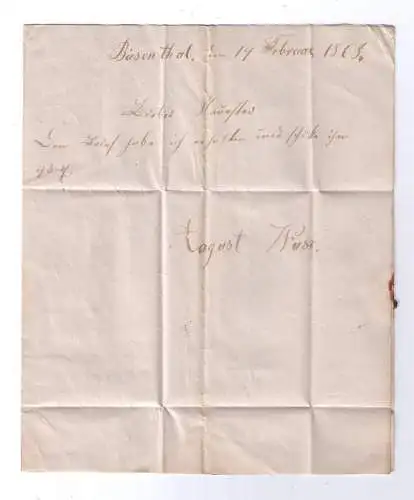 Bösenthal, den 14 Februar 1868.
Liebes
Den Brief habe ich erhalten und schike ihn
August Nuss.